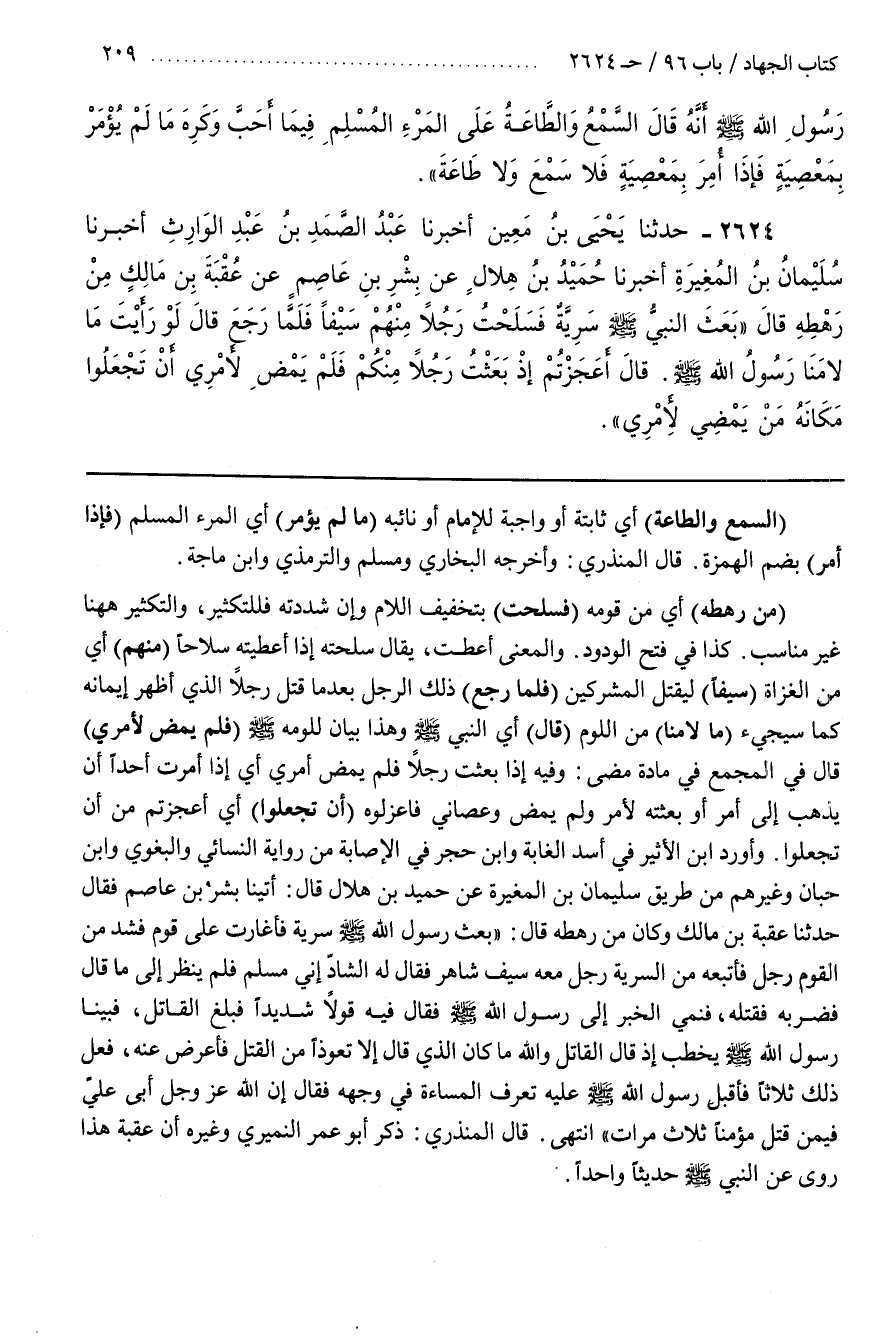 كتاب الجهاد / باب ٩٦ / حـ ٢٦٢٤ ........................................... ٢٠٩
رَسُولِ الله ﷺ أَنَّهُ قَالَ السَّمْعُ وَالطَّاعَةُ عَلَى المَرْءِ المُسْلِمِ فِيمَا أَحَبَّ وَكَرِهَ مَا لَمْ يُؤْمَرْ
بِمَعْصِيَةٍ فَإِذَا أُمِرَ بِمَعْصِيَةٍ فَلا سَمْعَ وَلا طَاعَةَ».
٢٦٢٤ ـ حدثنا يَحْيَى بنُ مَعِين أخبرنا عَبْدُ الصَّمَدِ بنُ عَبْدِ الوَارِثِ أخبرنا
سُلَيْمانُ بنُ المُغِيرَةِ أخبرنا حُمَيْدُ بنُ هِلالٍ عن بِشْرِ بنِ عَاصِمٍ عن عُقْبَةَ بِن مَالِكٍ مِنْ
رَهْطِهِ قالَ «بَعَثَ النبيُّ ﷺ سَرِيَّةً فَسَلَحْتُ رَجُلاً مِنْهُمْ سَيْفاً فَلَمَّا رَجَعَ قالَ لَوْ رَأَيْتَ مَا
لامَنَا رَسُولُ الله ﷺ. قالَ أَعَجَزْتُمْ إذْ بَعَثْتُ رَجُلاً مِنْكُمْ فَلَمْ يَمْضِ لأَمْرِي أَنْ تَجْعَلُوا
مَكَانَهُ مَنْ يَمْضِي لأَمْرِي».
(السمع والطاعة) أي ثابتة أو واجبة للإمام أو نائبه (ما لم يؤمر) أي المرء المسلم (فإذا
أمر) بضم الهمزة. قال المنذري: وأخرجه البخاري ومسلم والترمذي وابن ماجة.
(من رهطه) أي من قومه (فسلحت) بتخفيف اللام وإن شددته فللتكثير، والتكثير ههنا
غير مناسب. كذا في فتح الودود. والمعنى أعطت، يقال سلحته إذا أعطيته سلاحاً (منهم) أي
من الغزاة (سيفاً) ليقتل المشركين (فلما رجع) ذلك الرجل بعدما قتل رجلاً الذي أظهر إيمانه
كما سيجيء (ما لامنا) من اللوم (قال) أي النبي ﷺ وهذا بيان للومه ﷺ (فلم يمض لأمري)
قال في المجمع في مادة مضى: وفيه إذا بعثت رجلاً فلم يمض أمري أي إذا أمرت أحداً أن
يذهب إلى أمر أو بعثته لأمر ولم يمض وعصاني فاعزلوه (أن تجعلوا) أي أعجزتم من أن
تجعلوا. وأورد ابن الأثير في أسد الغابة وابن حجر في الإصابة من رواية النسائي والبغوي وابن
حبان وغيرهم من طريق سليمان بن المغيرة عن حميد بن هلال قال: أتينا بشر بن عاصم فقال
حدثنا عقبة بن مالك وكان من رهطه قال: «بعث رسول الله ﷺ سرية فأغارت على قوم فشد من
القوم رجل فأتبعه من السرية رجل معه سيف شاهر فقال له الشادّ إني مسلم فلم ينظر إلى ما قال
فضربه فقتله، فنمي الخبر إلى رسول الله ﷺ فقال فيه قولاً شديداً فبلغ القاتل، فبينا
رسول الله ﷺ يخطب إذ قال القاتل والله ما كان الذي قال إلا تعوذاً من القتل فأعرض عنه، فعل
ذلك ثلاثاً فأقبل رسول الله ﷺ عليه تعرف المساءة في وجهه فقال إن الله عز وجل أبى عليّ
فيمن قتل مؤمناً ثلاث مرات» انتهى. قال المنذري: ذكر أبو عمر النميري وغيره أن عقبة هذا
روى عن النبي ﷺ حديثاً واحداً.